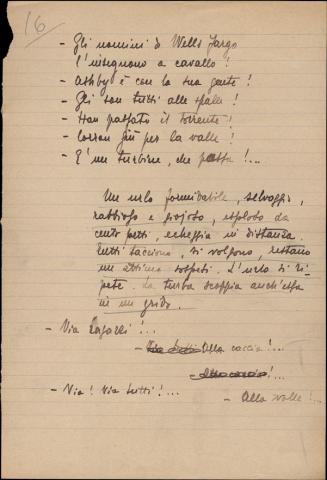 16
- Gli uomini di Wells Fargo
l'inseguono a cavallo!
- Ashby è con la sua gente!
- Gli son tutti alle spalle!
- Han passato il torrente!
- Corron giù per la valle!
- E' un turbine, che passa!...
Un urlo formidabile, selvaggio,
rabbioso e gioioso, esploso da
cento petti, echeggia in distanza.
Tutti tacciono, si volgono, restano
un attimo sospesi. L'urlo si ri-
pete. La turba scoppia anch'essa
in un grido.
- Via Ragazzi!...
- Alla caccia!...
!...
- Via! Via tutti!...
- Alla valle!...